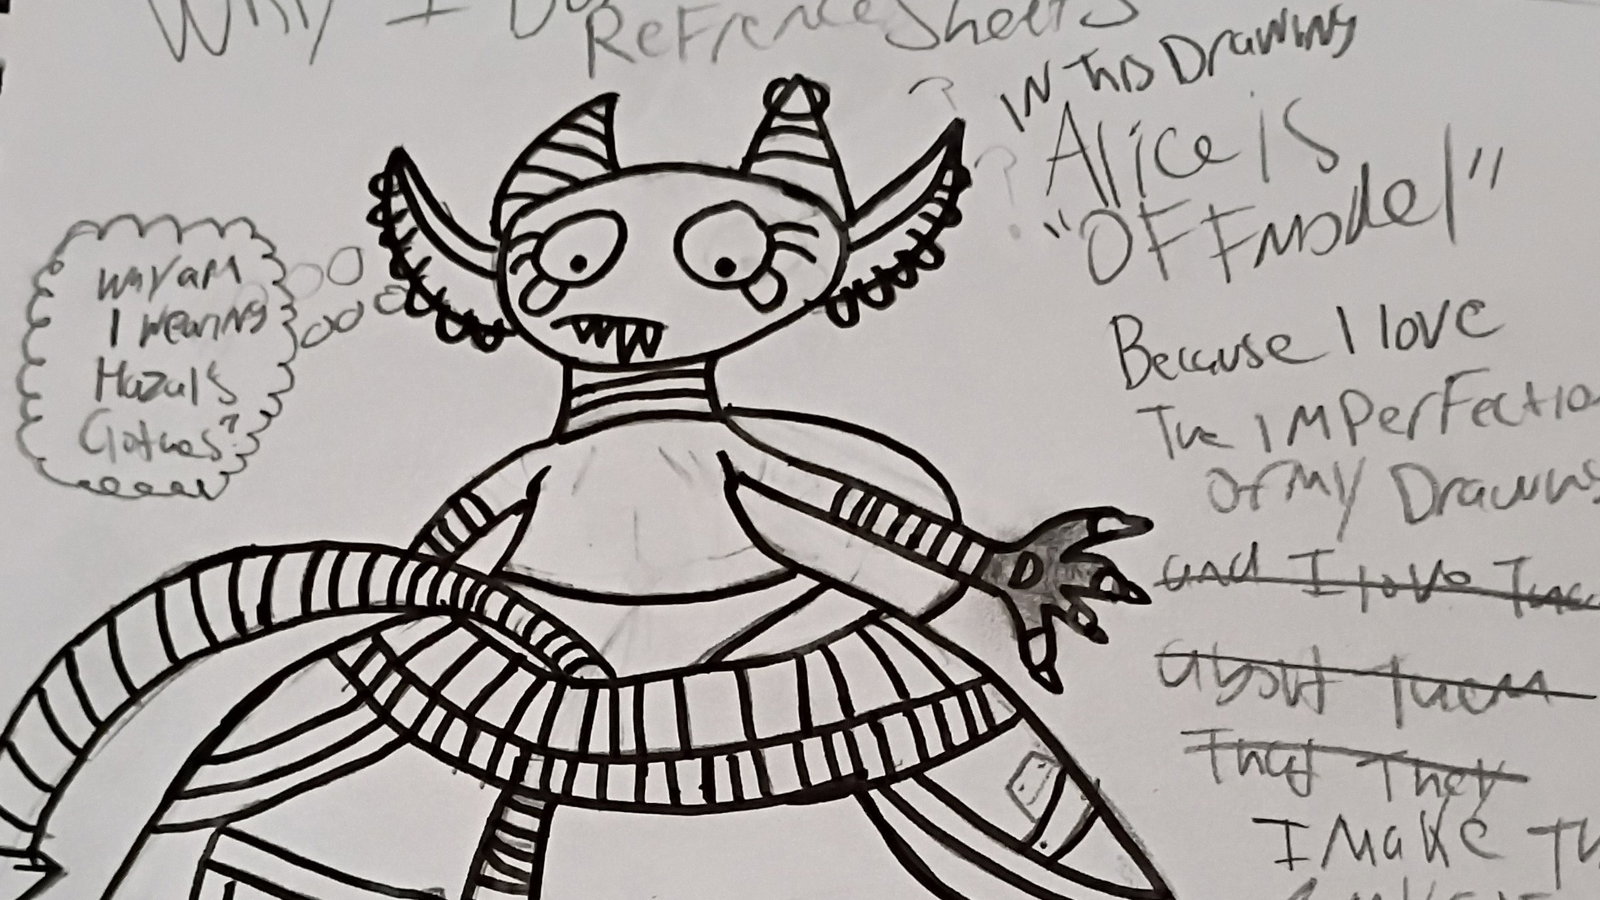 Why I Do
Refrence Sheets
IN This Drawing
Alice is
"OFF model"
Because I love
The IMPerfectio
OF MY Drawing
and I love
about them
That They
I Make Th
Why am
I wearing
Hazuls
Clothes?